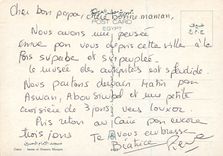 Cher bon papa, chère bonne maman,
POST CARD
EGYPT
Nous avons une pensée
émue pour vous depuis cette ville à la
fois superbe et surpeuplée.
Le musée des antiquités est splendide.
Nous partons demain matin pour
Aswan, Abou Simbel et une petite
croisière de 3 jours vers Louxor.
Puis retour au Caire pour encore
trois jours
Je vous embrasse
Béatrice